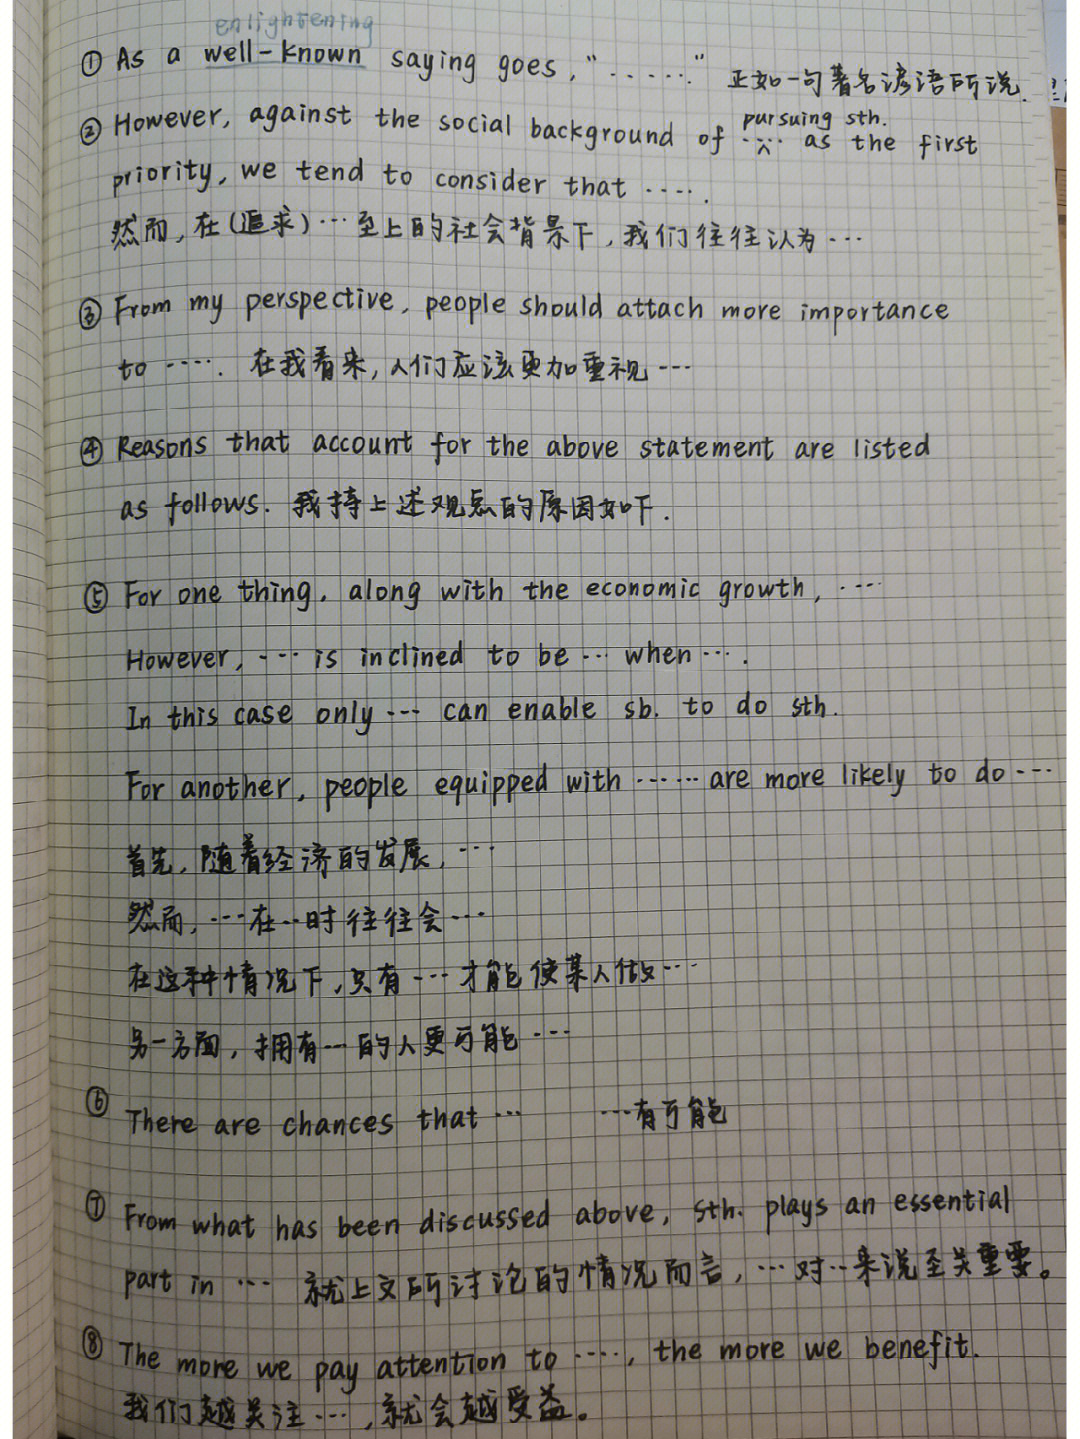 enlightening
① As a well-known saying goes, "......" 正如一句著名谚语所说.
pursuing sth.
② However, against the social background of ... as the first
priority, we tend to consider that .....
然而,在(追求)…至上的社会背景下,我们往往认为…
③ From my perspective, people should attach more importance
to ...... 在我看来,人们应该更加重视…
④ Reasons that account for the above statement are listed
as follows. 我持上述观点的原因如下.
⑤ For one thing, along with the economic growth, ....
However, .... is inclined to be ... when ....
In this case only ... can enable sb. to do sth.
For another, people equipped with ...... are more likely to do ...
首先,随着经济的发展,…
然而,…在…时往往会…
在这种情况下,只有…才能使某人做…
另一方面,拥有…的人更可能…
⑥ There are chances that ... …有可能
⑦ From what has been discussed above, sth. plays an essential
part in .... 就上文所讨论的情况而言,…对…来说至关重要。
⑧ The more we pay attention to ...., the more we benefit.
我们越关注…,就会越受益。